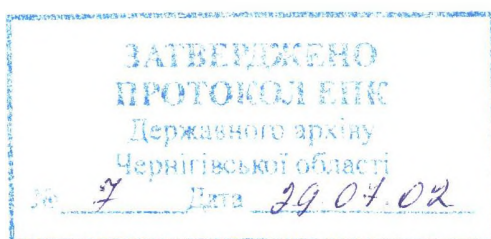 ЗАТВЕРДЖЕНО
ПРОТОКОЛ ЕПК
Державного архіву
Чернігівської області
№ 7 Дата 29.07.02